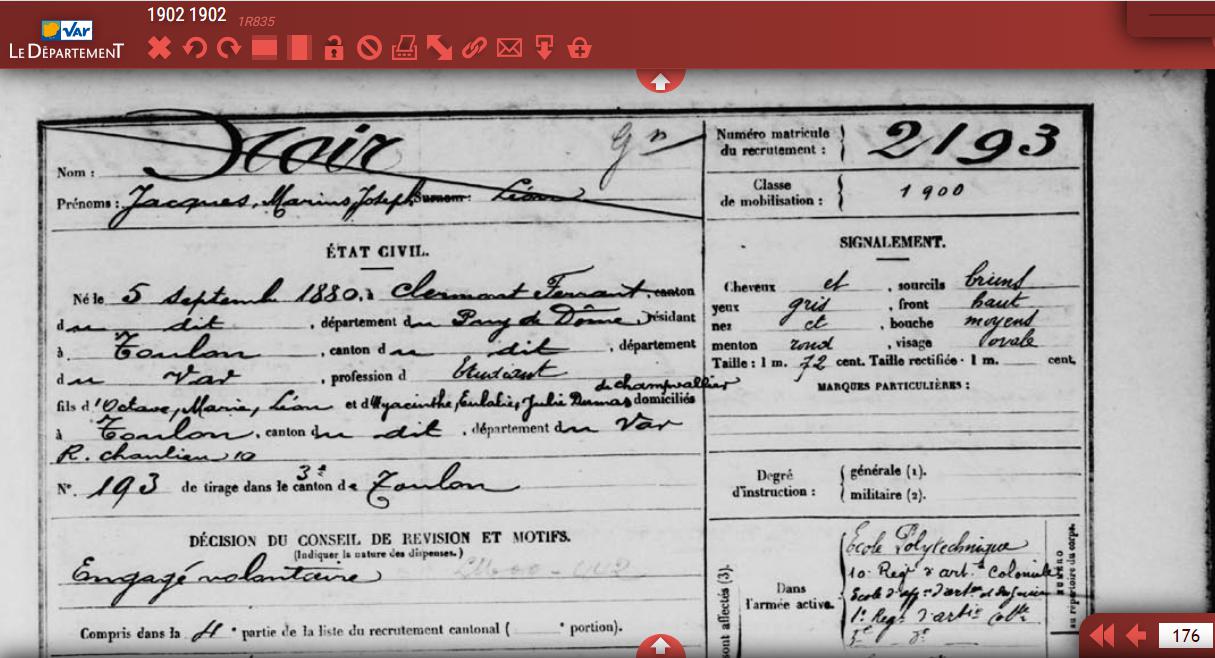 1902 1902 1R835
VAR
LE DÉPARTEMENT
Nom : Noir
Prénoms : Jacques, Marius, Joseph Surnom : Léon
ÉTAT CIVIL.
Né le 5 septembre 1880, à Clermont Ferrant, canton
du dit, département du Puy de Dôme, résidant
à Toulon, canton du dit, département
du Var, profession d Etudiant
fils d'Octave, Marie, Léon et d'Hyacinthe, Eulalie, Julie Dumas de champvallier domiciliés
à Toulon, canton du dit, département du Var
R. 10
N° 193 de tirage dans le 3e canton de Toulon
DÉCISION DU CONSEIL DE REVISION ET MOTIFS.
(Indiquer la nature des dispenses.)
Engagé volontaire
Compris dans la 4e partie de la liste du recrutement cantonal ( e portion).
Numéro matricule du recrutement : 2193
Classe de mobilisation : 1900
SIGNALEMENT.
Cheveux et, sourcils bruns
yeux gris, front haut
nez et, bouche moyens
menton rond, visage ovale
Taille : 1 m. 72 cent. Taille rectifiée : 1 m. cent.
MARQUES PARTICULIÈRES :
Degré d'instruction : générale (1).
militaire (2).
sont affectés (3).
Dans l'armée active.
Ecole Polytechnique
10e Regt d'artie Coloniale
Ecole d'appon d'artie et du génie
1e Regt d'artie Colle
NUMÉRO
au répertoire du corps.
176